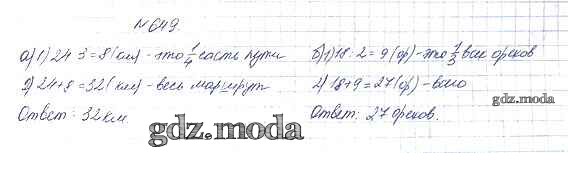 №649.
а) 1) 24 3 = 8 (км) - это 1/4 часть пути
2) 24+8=32(км) - весь маршрут
Ответ: 32 км.
б) 1) 18 : 2 = 9 (ор) - это 1/3 всех орехов
2) 18+9=27(ор) - всего
Ответ: 27 орехов.
gdz.moda
gdz.moda